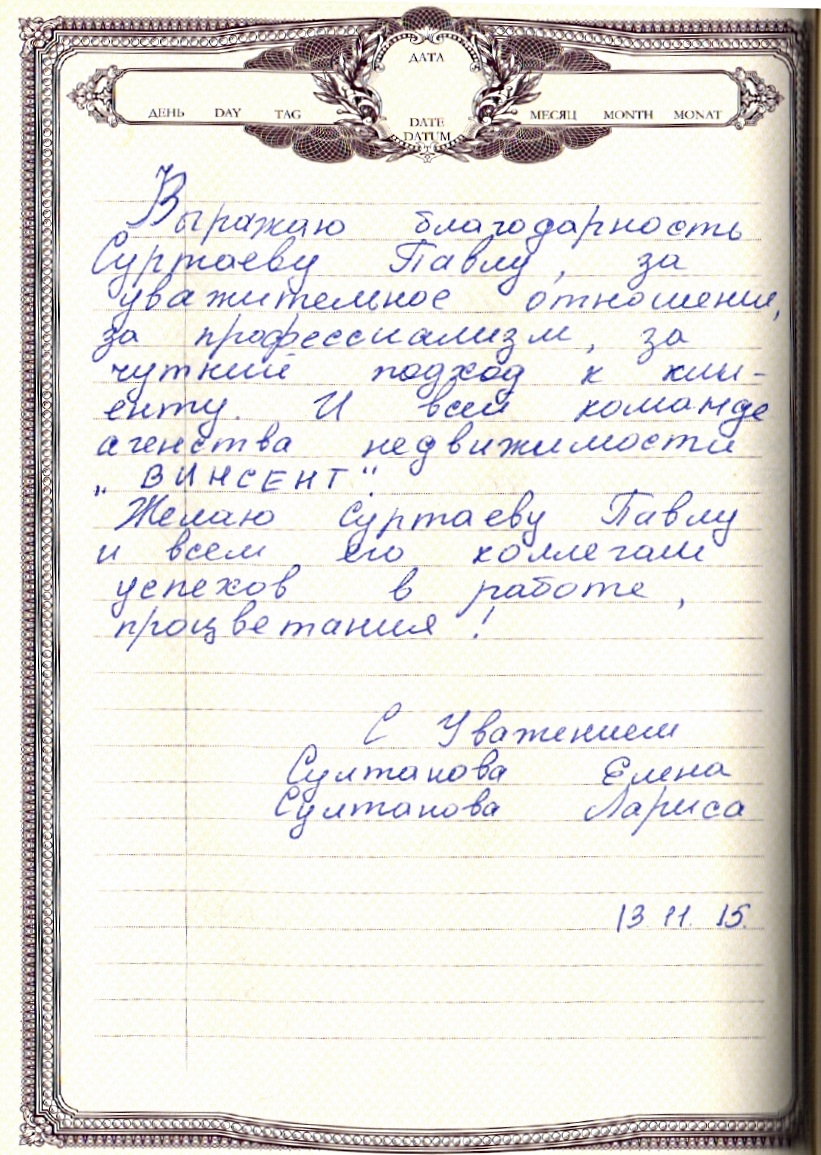 ДАТА
ДЕНЬ DAY TAG
DATE
DATUM
МЕСЯЦ MONTH MONAT
Выражаю благодарность
Суртаеву Павлу, за
уважительное отношение,
за профессиализм, за
чуткий подход к кли-
енту. И всей команде
агенства недвижимости
„ВИНСЕНТ".
Желаю Суртаеву Павлу
и всем его коллегам
успехов в работе,
процветания!
С Уважением
Султанова Елена
Султанова Лариса
13.11.15.